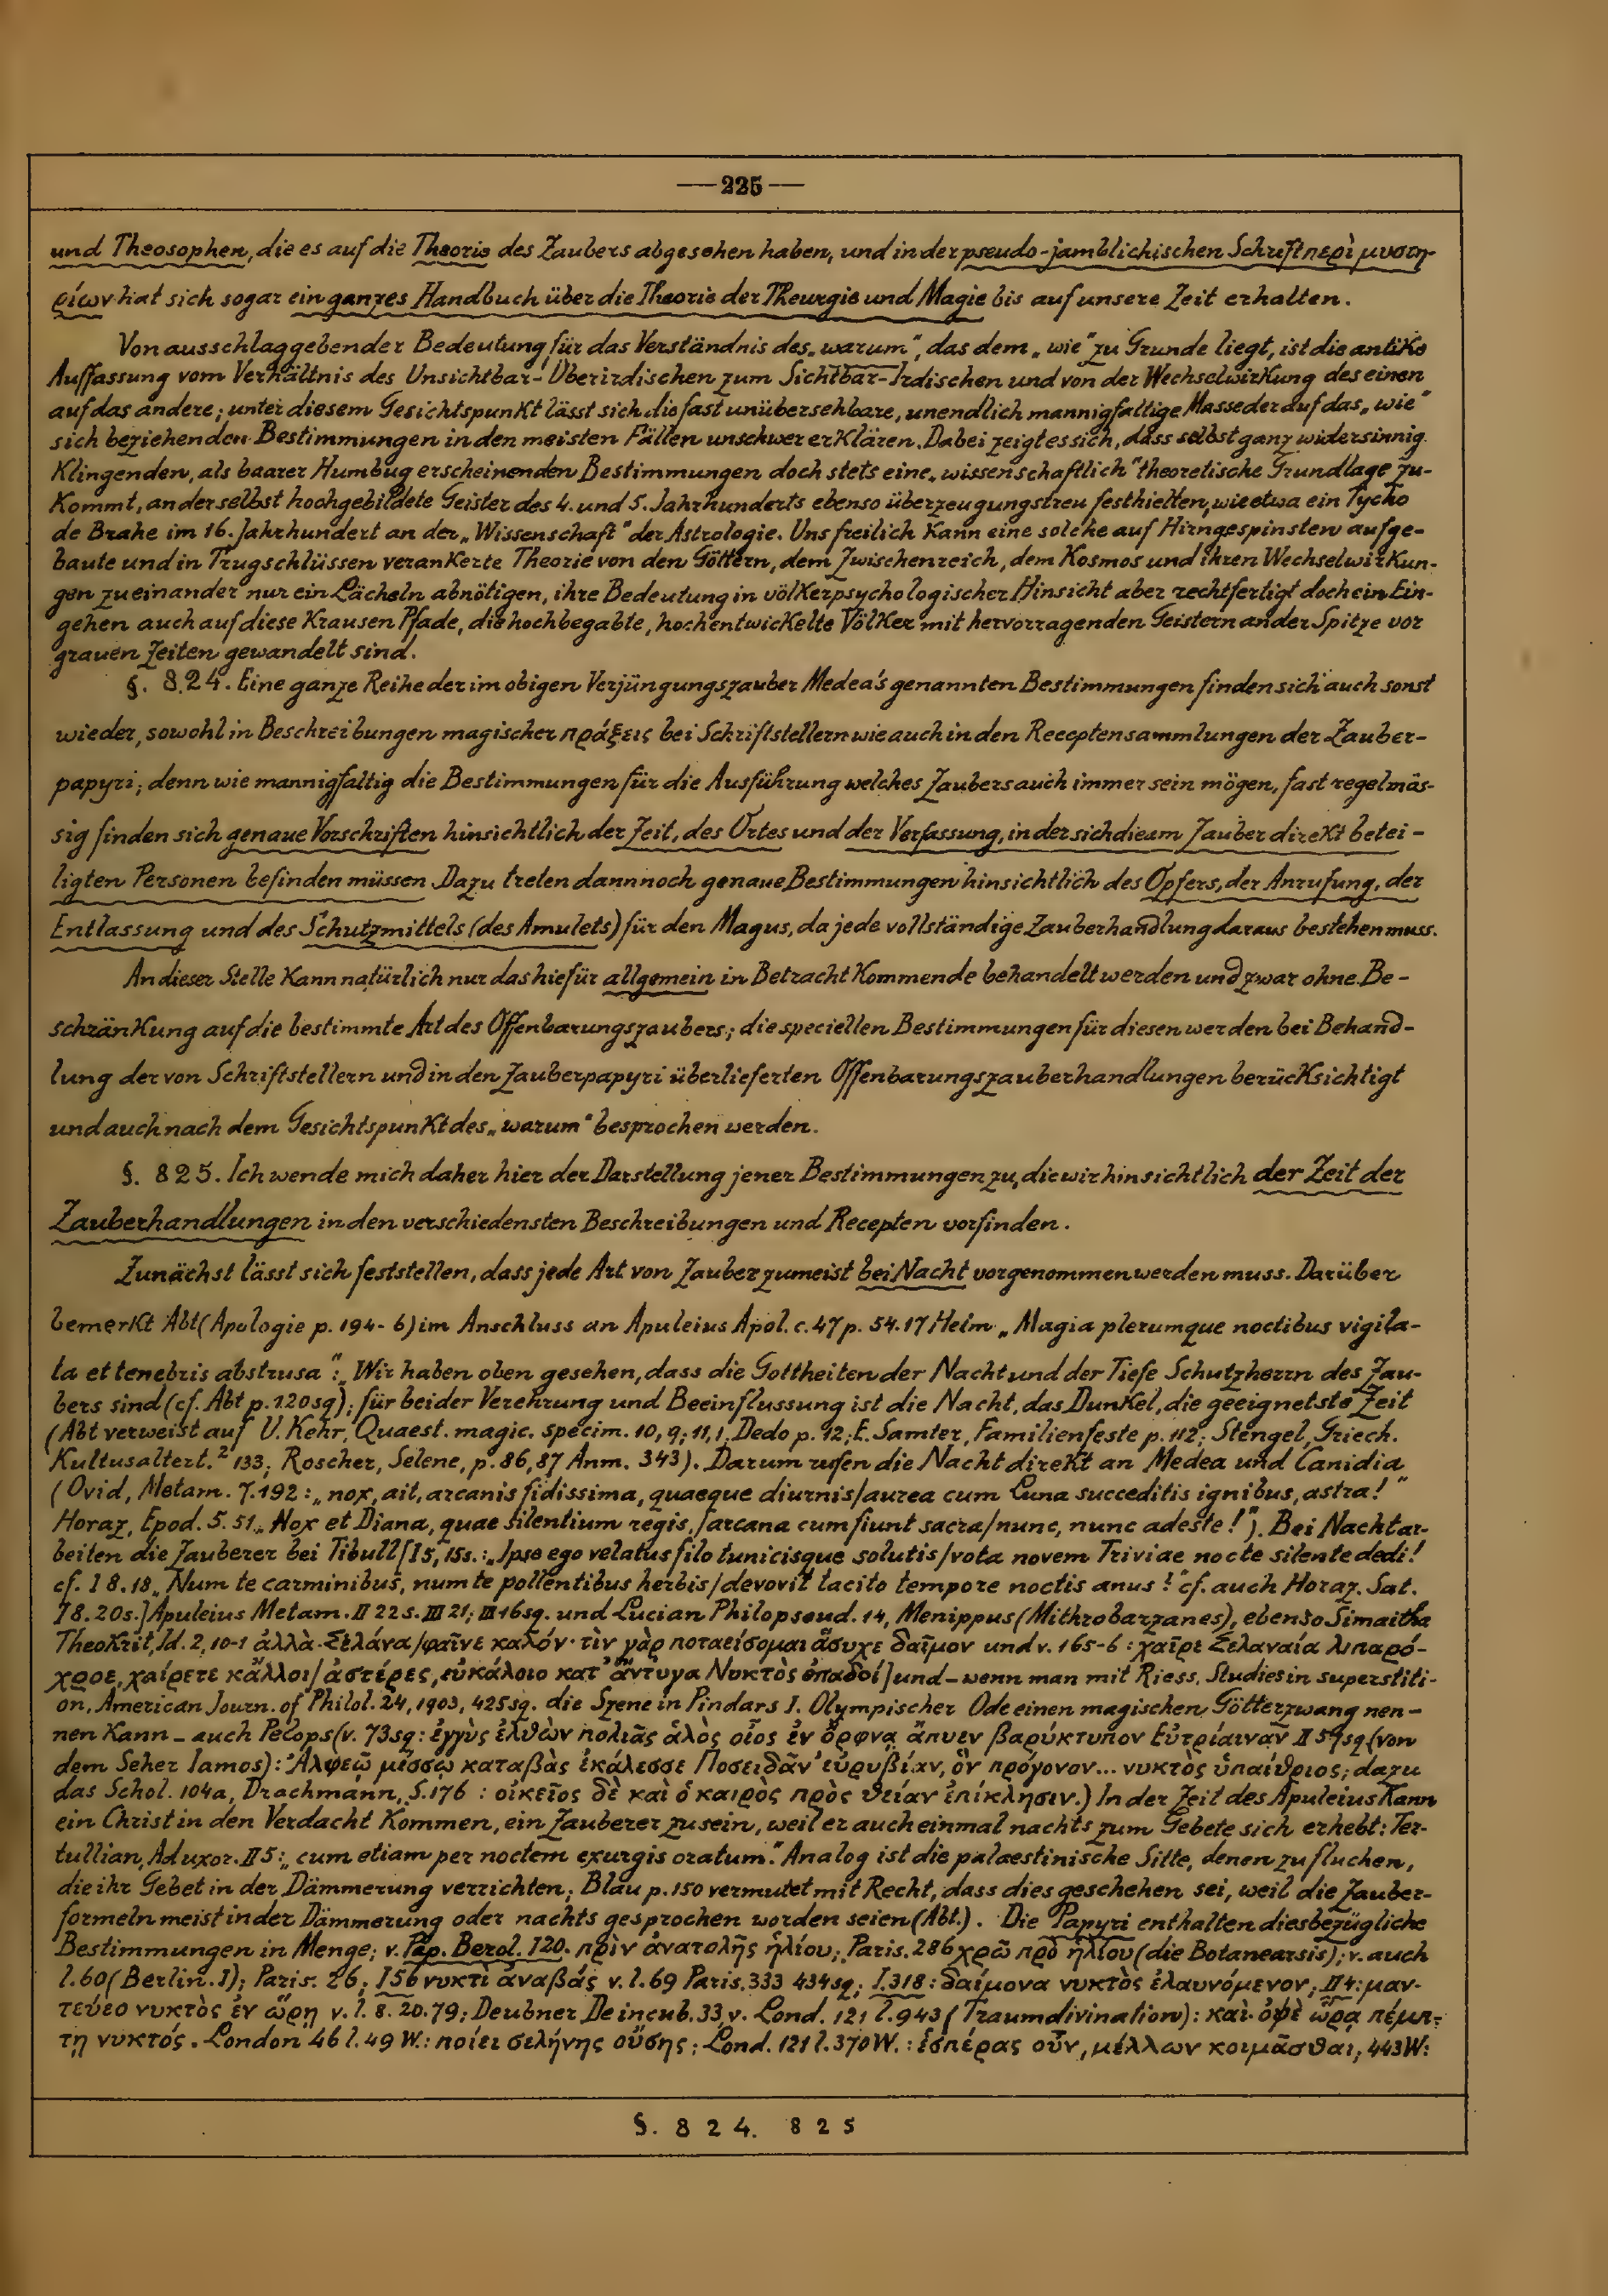 —225—
und Theosophen, die es auf die Theorie des Zaubers abgesehen haben, und in der pseudo-jamblichischen Schrift περὶ μυστη-
ρίων hat sich sogar ein ganzes Handbuch über die Theorie der Theurgie und Magie bis auf unsere Zeit erhalten.
Von ausschlaggebender Bedeutung für das Verständnis des „warum“, das dem „wie“ zu Grunde liegt, ist die antike
Auffassung vom Verhältnis des Unsichtbar-Überirdischen zum Sichtbar-Irdischen und von der Wechselwirkung des einen
auf das andere; unter diesem Gesichtspunkt lässt sich die fast unübersehbare, unendlich mannigfaltige Masse der auf das „wie“
sich beziehenden Bestimmungen in den meisten Fällen unschwer erklären. Dabei zeigt es sich, dass selbst ganz widersinnig
klingenden, als baarer Humbug erscheinenden Bestimmungen doch stets eine „wissenschaftlich“ theoretische Grundlage zu-
kommt, an der selbst hochgebildete Geister des 4. und 5. Jahrhunderts ebenso überzeugungstreu festhielten, wie etwa ein Tycho
de Brahe im 16. Jahrhundert an der „Wissenschaft“ der Astrologie. Uns freilich kann eine solche auf Hirngespinsten aufge-
baute und in Trugschlüssen verankerte Theorie von den Göttern, dem Zwischenreich, dem Kosmos und ihren Wechselwirkun-
gen zueinander nur ein Lächeln abnötigen, ihre Bedeutung in völkerpsychologischer Hinsicht aber rechtfertigt doch ein Ein-
gehen auch auf diese krausen Pfade, die hochbegabte, hochentwickelte Völker mit hervorragenden Geistern an der Spitze vor
grauen Zeiten gewandelt sind.
§. 824. Eine ganze Reihe der im obigen Verjüngungszauber Medea's genannten Bestimmungen finden sich auch sonst
wieder, sowohl in Beschreibungen magischer πράξεις bei Schriftstellern wie auch in den Receptensammlungen der Zauber-
papyri; denn wie mannigfaltig die Bestimmungen für die Ausführung welches Zaubers auch immer sein mögen, fast regelmäs-
sig finden sich genaue Vorschriften hinsichtlich der Zeit, des Ortes und der Verfassung, in der sich die am Zauber direkt betei-
ligten Personen befinden müssen. Dazu treten dann noch genaue Bestimmungen hinsichtlich des Opfers, der Anrufung, der
Entlassung und des Schutzmittels (des Amulets) für den Magus, da jede vollständige Zauberhandlung daraus bestehen muss.
An dieser Stelle kann natürlich nur das hiefür allgemein in Betracht Kommende behandelt werden und zwar ohne Be-
schränkung auf die bestimmte Art des Offenbarungszaubers; die speciellen Bestimmungen für diesen werden bei Behand-
lung der von Schriftstellern und in den Zauberpapyri überlieferten Offenbarungszauberhandlungen berücksichtigt
und auch nach dem Gesichtspunkt des „warum“ besprochen werden.
§. 825. Ich wende mich daher hier der Darstellung jener Bestimmungen zu, die wir hinsichtlich der Zeit der
Zauberhandlungen in den verschiedensten Beschreibungen und Recepten vorfinden.
Zunächst lässt sich feststellen, dass jede Art von Zauber zumeist bei Nacht vorgenommen werden muss. Darüber
bemerkt Abt (Apologie p. 194-6) im Anschluss an Apuleius Apol. c. 47 p. 54.17 Helm „Magia plerumque noctibus vigila-
ta et tenebris abstrusa“: „Wir haben oben gesehen, dass die Gottheiten der Nacht und der Tiefe Schutzherrn des Zau-
bers sind (cf. Abt p. 120sq); für beider Verehrung und Beeinflussung ist die Nacht, das Dunkel, die geeignetste Zeit
(Abt verweist auf U. Kehr, Quaest. magic. specim. 10, 9; 11, 1, Dedo p. 12; E. Samter, Familienfeste p. 112; Stengel, Griech.
Kultusaltert.² 133; Roscher, Selene, p. 86, 87 Anm. 343). Darum rufen die Nacht direkt an Medea und Canidia
(Ovid, Metam. 7.192: „nox, ait, arcanis fidissima, quaeque diurnis/aurea cum Luna succeditis ignibus, astra!“
Horaz, Epod. 5. 51 „Nox et Diana, quae silentium regis,/arcana cum fiunt sacra/nunc, nunc adeste!“). Bei Nacht ar-
beiten die Zauberer bei Tibull [I 5, 15s.: „Ipse ego velatus filo tunicisque solutis/vota novem Triviae nocte silente dedi!
cf. I 8. 18 „Num te carminibus, num te pollentibus herbis/devovit tacito tempore noctis anus?“ cf. auch Horaz. Sat.
I 8. 20s.] Apuleius Metam. II 22 s. III 21; III 16sq. und Lucian Philopseud. 14, Menippus (Mithrobarzanes), ebenso Simaitha
Theokrit, Id. 2, 10-1 ἀλλὰ Σελάνα/φαῖνε καλόν· τὶν γὰρ ποταείσομαι ἅσυχε δαῖμον und v. 165-6: χαῖρε Σελαναία λιπαρό-
χροε, χαίρετε κἄλλοι/ἀστέρες, εὐκάλοιο κατ' ἄντυγα Νυκτὸς ὀπαδοί] und – wenn man mit Riess, Studies in superstiti-
on, American Journ. of Philol. 24, 1903, 425sq. die Szene in Pindars I. Olympischer Ode einen magischen Götterzwang nen-
nen kann – auch Pelops (v. 73sq: ἐγγὺς ἐλθὼν πολιᾶς ἁλὸς οἶος ἐν ὄρφνᾳ ἄπυεν βαρύκτυπον Εὐτρίαιναν II 59sq (von
dem Seher Iamos): Ἀλφεῷ μέσσῳ καταβὰς ἐκάλεσσε Ποσειδᾶν' εὐρυβίαν, ὃν πρόγονον... νυκτὸς ὑπαίθριος; dazu
das Schol. 104a, Drachmann, S. 176: οἰκεῖος δὲ καὶ ὁ καιρὸς πρὸς θείαν ἐπίκλησιν.) In der Zeit des Apuleius kann
ein Christ in den Verdacht kommen, ein Zauberer zu sein, weil er auch einmal nachts zum Gebete sich erhebt: Ter-
tullian, Ad uxor. II 5: „cum etiam per noctem exurgis oratum.“ Analog ist die palaestinische Sitte, denen zu fluchen,
die ihr Gebet in der Dämmerung verrichten; Blau p. 150 vermutet mit Recht, dass dies geschehen sei, weil die Zauber-
formeln meist in der Dämmerung oder nachts gesprochen worden seien (Abt.). Die Papyri enthalten diesbezügliche
Bestimmungen in Menge; v. Pap. Berol. 120. πρὶν ἀνατολῆς ἡλίου; Paris. 286 χρῶ πρὸ ἡλίου (die Botanearsis); v. auch
l. 60 (Berlin. I); Paris. 26; I 56 νυκτὶ ἀναβάς v. l. 69 Paris. 333 434sq; I. 318: δαίμονα νυκτὸς ἐλαυνόμενον; II 4: μαν-
τεύεο νυκτὸς ἐν ὥρῃ v. l. 8. 20. 79; Deubner De incub. 33, v. Lond. 121 l. 943 (Traumdivination): καὶ ὀψὲ ὥρᾳ πέμπ-
τῃ νυκτός. London 46 l. 49 W.: ποίει σελήνης οὔσης; Lond. 121 l. 370 W.: ἑσπέρας οὖν, μέλλων κοιμᾶσθαι; 443 W:
§. 824. 825